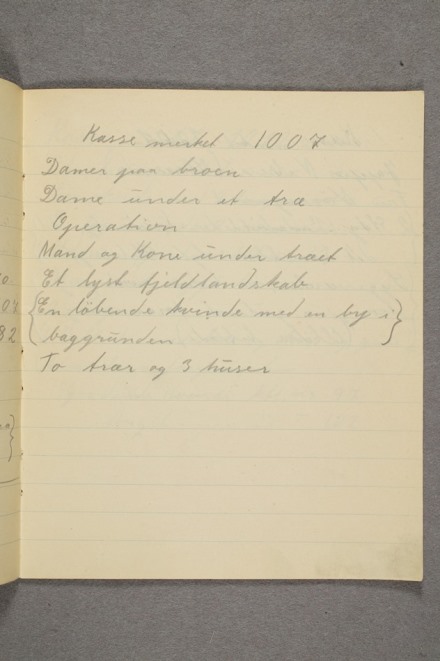 Kasse merket 1007
Damer paa broen
Dame under et træ
Operation
Mand og Kone under træet
Et lyst fjeldlandskab
{En löbende kvinde med en by i}
baggrunden
To trær og 3 huser
07
82